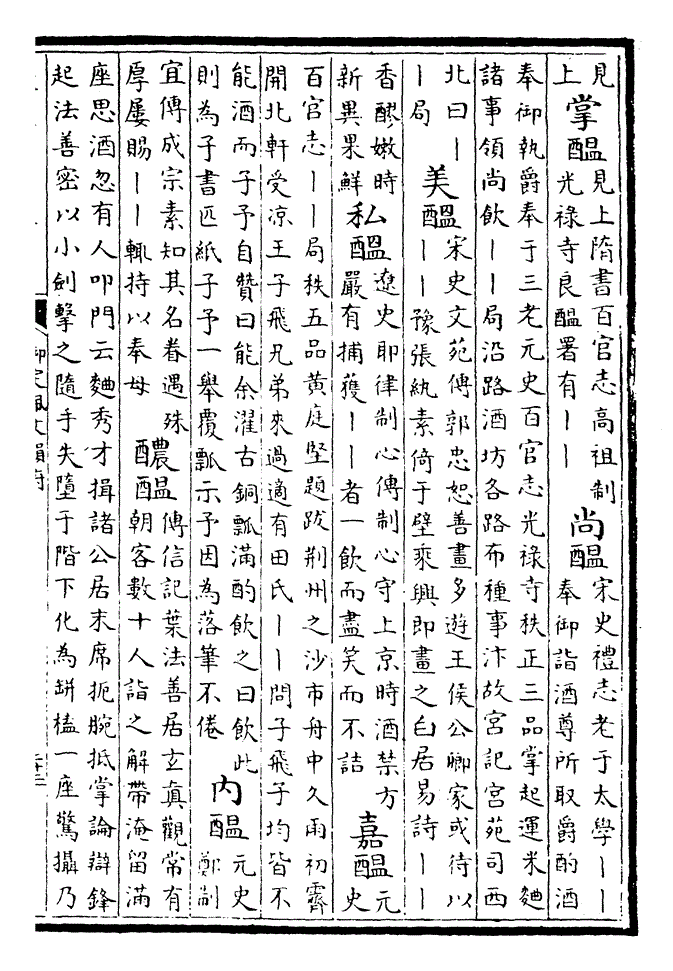 見上 掌醖 見上隋書百官志高祖制光祿寺良醖署有—— 尚醖 宋史禮志老于太學——奉御詣酒尊所取爵酌酒
奉御執爵奉于三老元史百官志光祿寺秩正三品掌起運米麯
諸事領尚飲——局沿路酒坊各路布種事汴故宮記宮苑司西
北曰——局 美醖 宋史文苑傳郭忠恕善畫多遊王侯公卿家或待以——豫張紈素倚于壁乘興即畫之白居易詩——
香醪嫩時新異果鮮 私醖 遼史耶律制心傳制心守上京時酒禁方嚴有捕獲——者一飲而盡笑而不詰 嘉醖 元史
百官志——局秩五品黄庭堅題跋荆州之沙市舟中久雨初霽
開北軒受凉王子飛兄弟來過適有田氏——問子飛子均皆不
能酒而子予自贊曰能余濯古銅瓢滿酌飲之曰飲此則為子書匹紙子予一舉覆瓢示予因為落筆不倦 內醖 元史鄭制
宜傳成宗素知其名眷遇殊厚屢賜——輒持以奉母 醲醖 傳信記葉法善居玄真觀常有朝客數十人詣之解帶淹留滿
座思酒忽有人叩門云麯秀才揖諸公居末席扼腕抵掌論辯鋒
起法善密以小劍擊之隨手失墮于階下化為缾榼一座驚攝乃